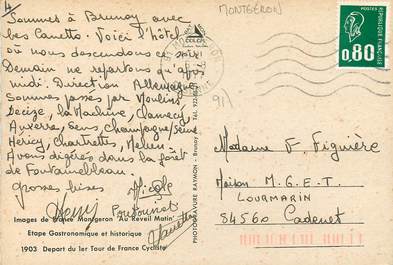 4
MONTGERON
Sommes à Brunoy avec
les Canetto. Voici l'hôtel
où nous descendons ce soir
Demain ne repartons qu'après
midi. Direction Allemagne
Sommes passés par Moulins
Decize, la Machine, Clamecy
Auxerre, Sens, Champagne/Seine
Hericy, Chartrettes, Melun.
Avons digérés dans la forêt
de Fontainebleau.
Grosses bises Nicole
Images de France Montgeron "Au Reveil Matin"
Etape Gastronomique et historique
1903 Depart du 1er Tour de France Cycliste
PHOTOGRAVURE RAYMON - Brunoy
POSTES
0,80
91
Madame F Figuière
Maison M.G.E.T.
LOURMARIN
84560 Cadenet